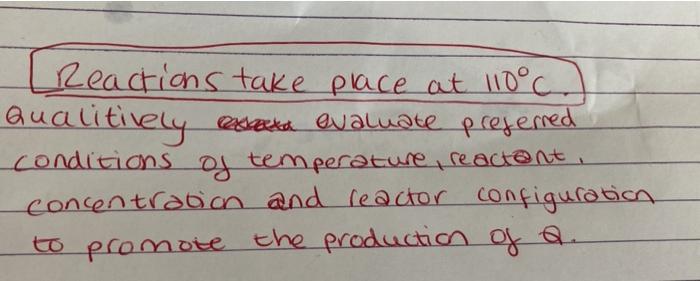 Reactions take place at 110°C.
Qualitively evaluate preferred
conditions of temperature, reactant,
concentration and reactor configuration
to promote the production of Q.